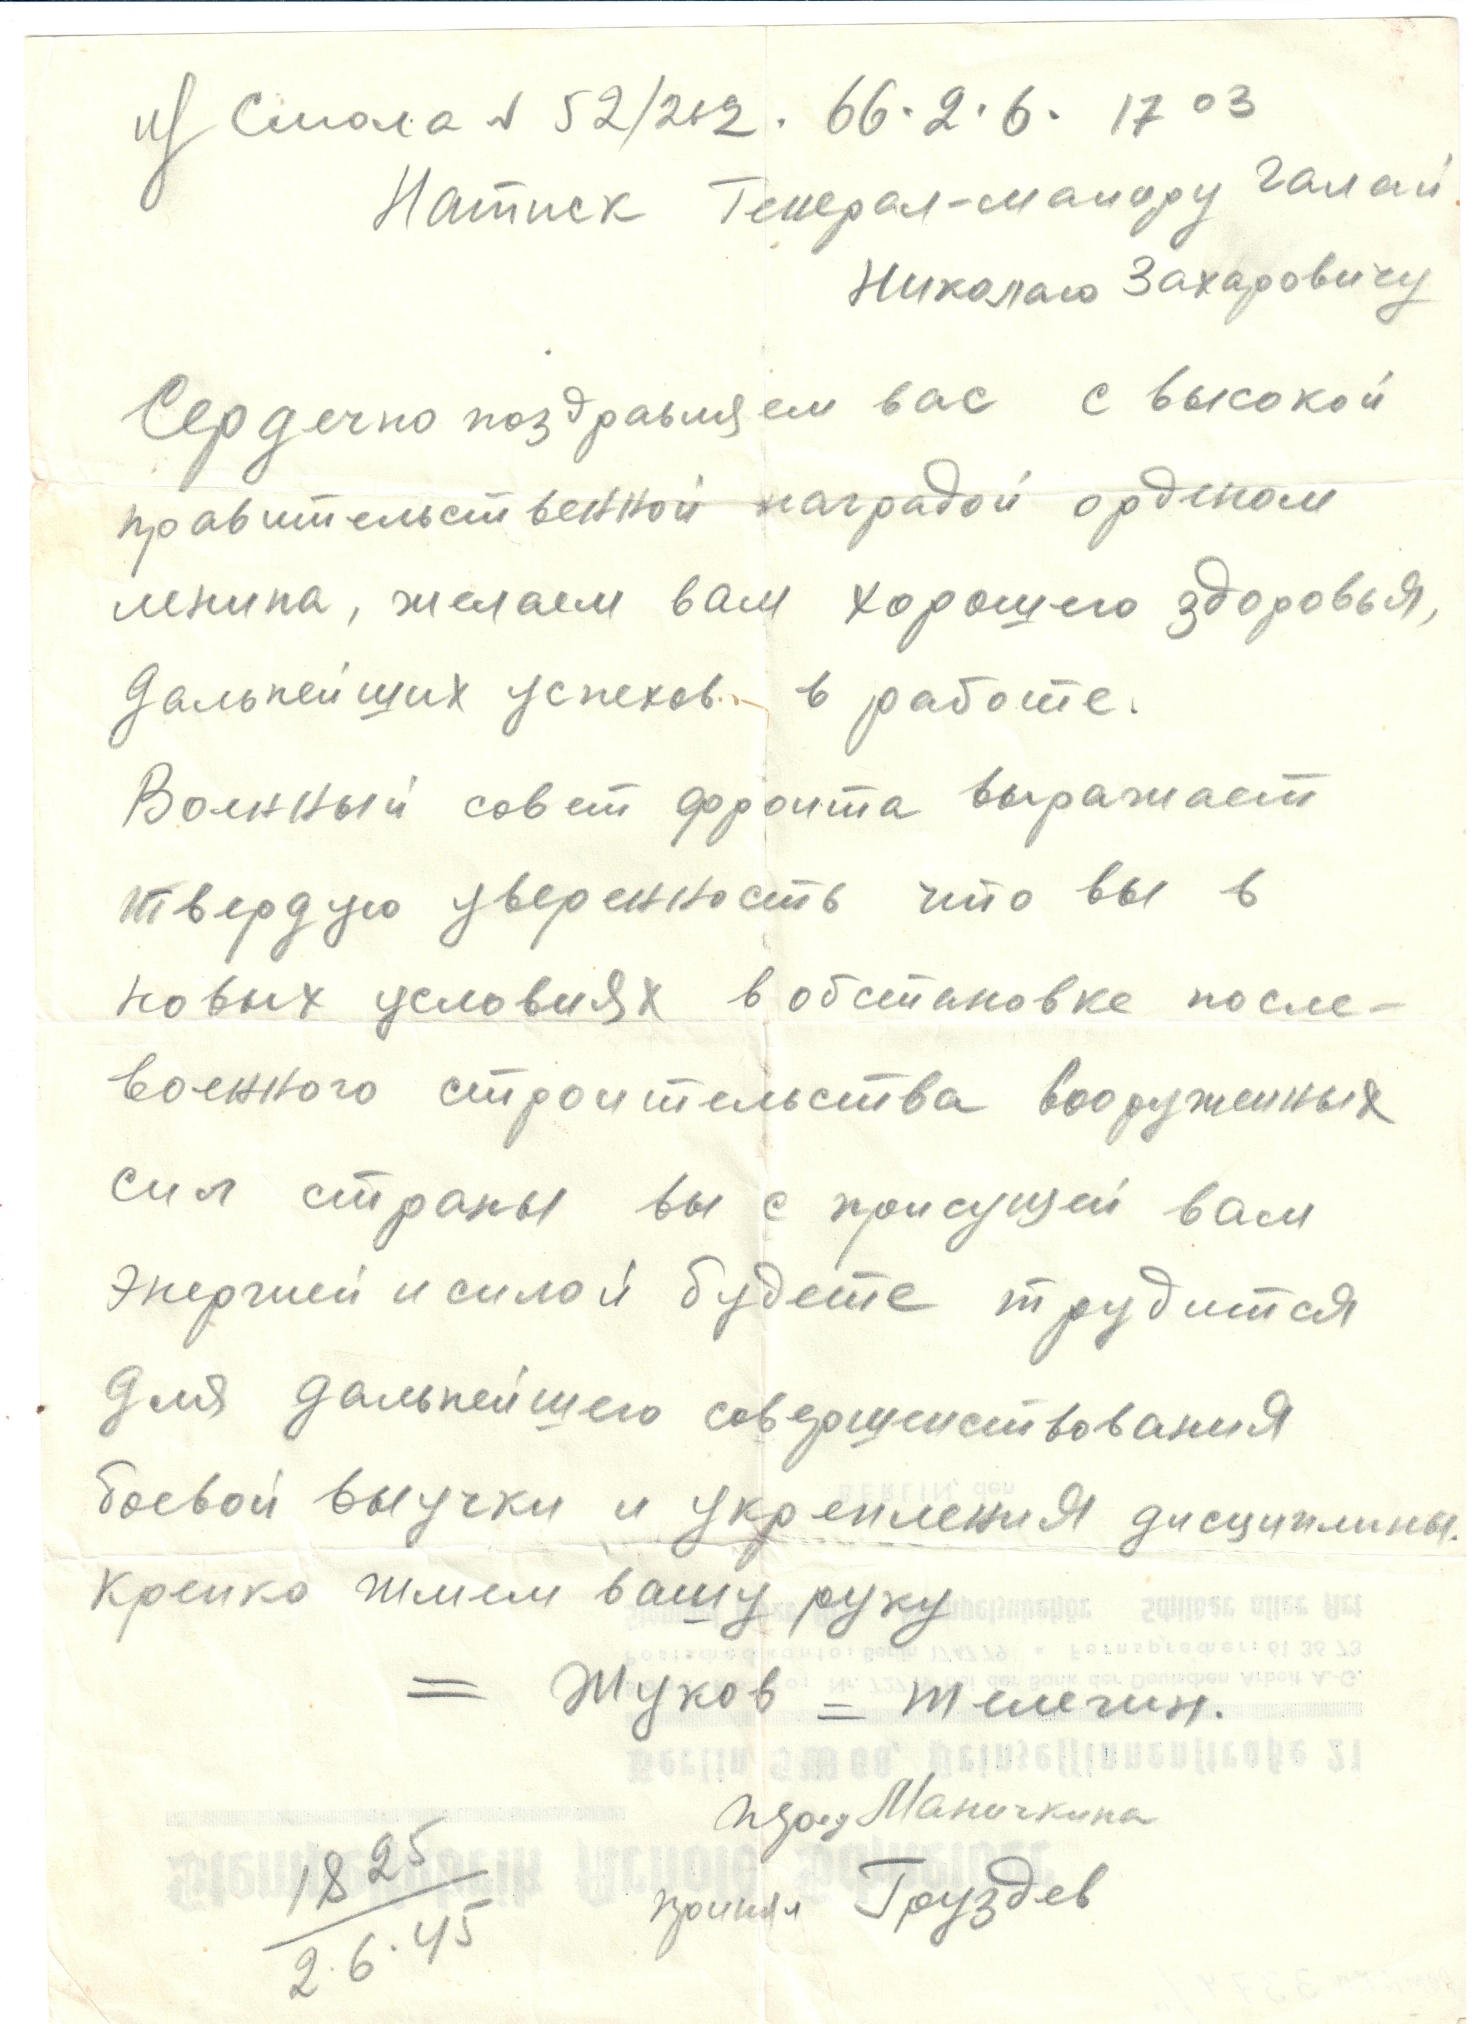 Смола № 52/212. 66. 2. 6. 17 03
Натиск Генерал-майору Галай
Николаю Захаровичу
Сердечно поздравляем вас с высокой
правительственной наградой орденом
ленина, желаем вам хорошего здоровья,
дальнейших успехов в работе.
Военный совет фронта выражает
твердую уверенность что вы в
новых условиях в обстановке после-
военного строительства вооруженных
сил страны вы с присущей вам
энергией и силой будете трудится
для дальнейшего совершенствования
боевой выучки и укрепления дисциплины.
Крепко жмем вашу руку
= Жуков = Телегин.
Маничкина
принял Груздев
18 25
2.6.45